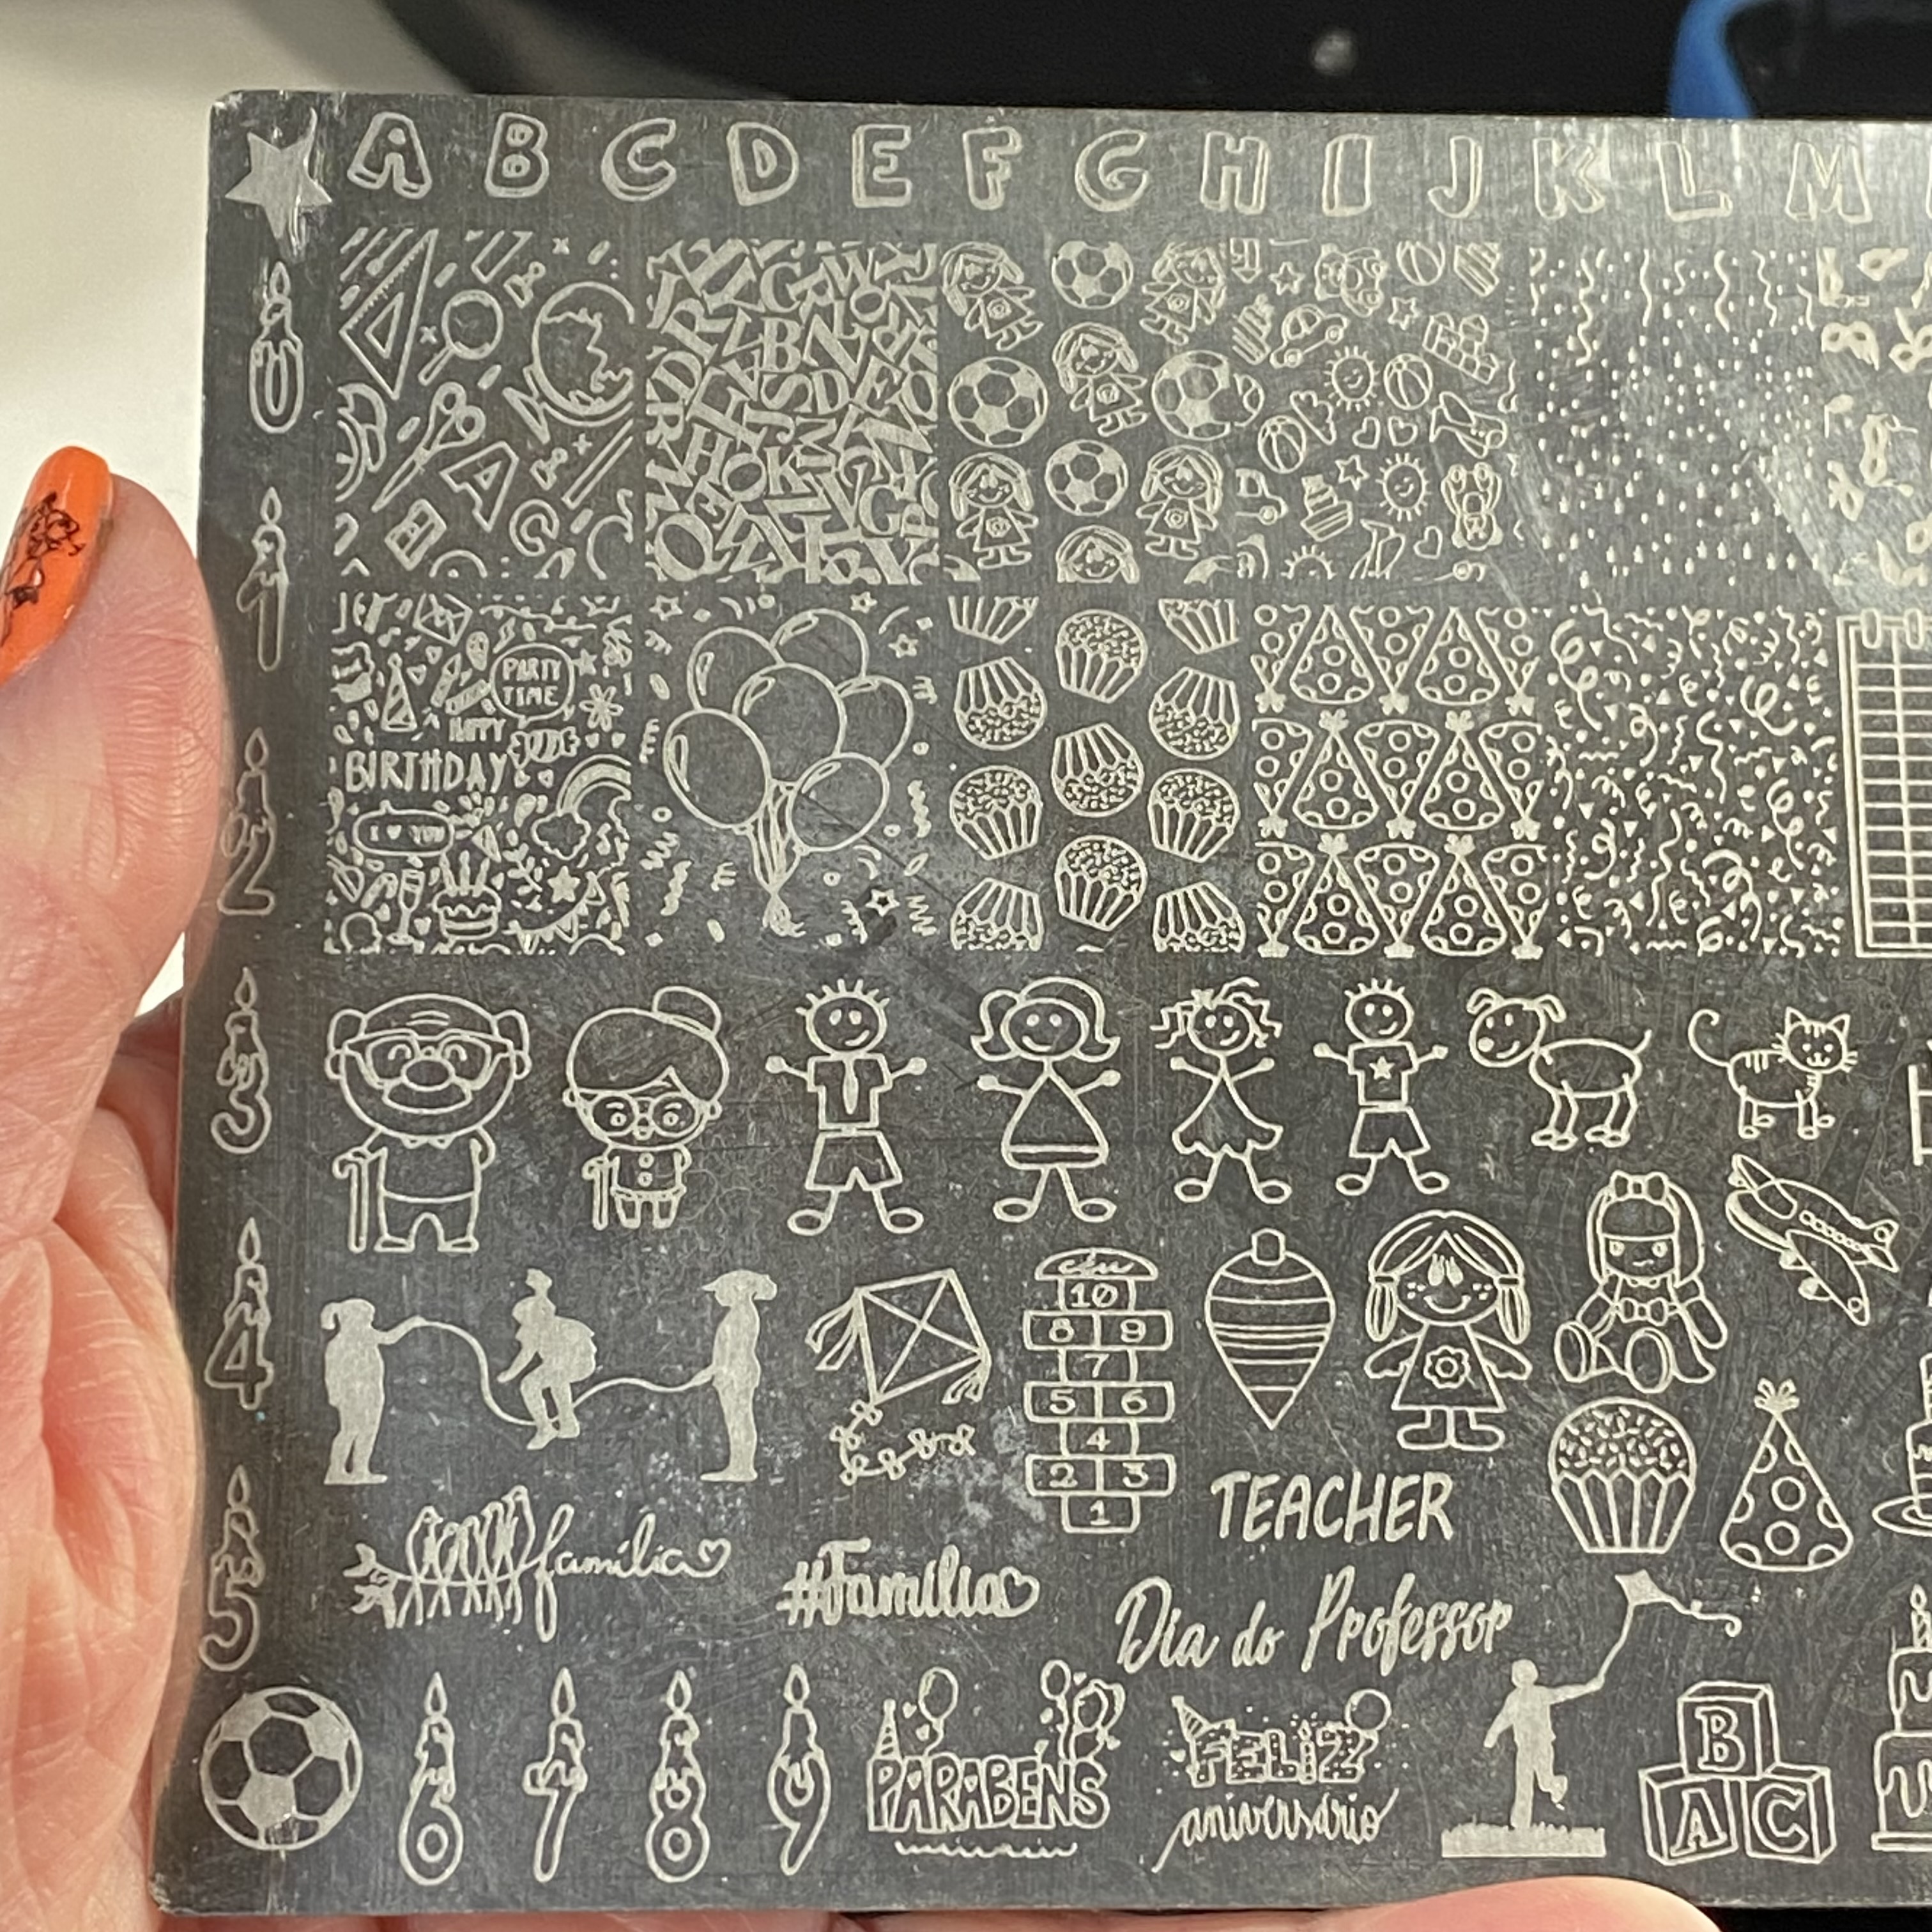 A B C D E F G H I J K L M
0
1
2
3
4
5
PARTY
TIME
HAPPY
BIRTHDAY
I ♥ YOU
céu
10
8 9
7
5 6
4
2 3
1
TEACHER
família
#Família
Dia do Professor
6 7 8 9
PARABÉNS
FELIZ
aniversário
B
A C